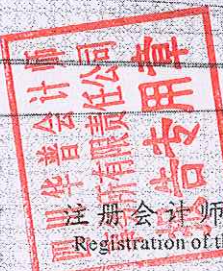 四川华普会计师
事务所有限责任公司
报告专用章
注册会计师
Registration of th